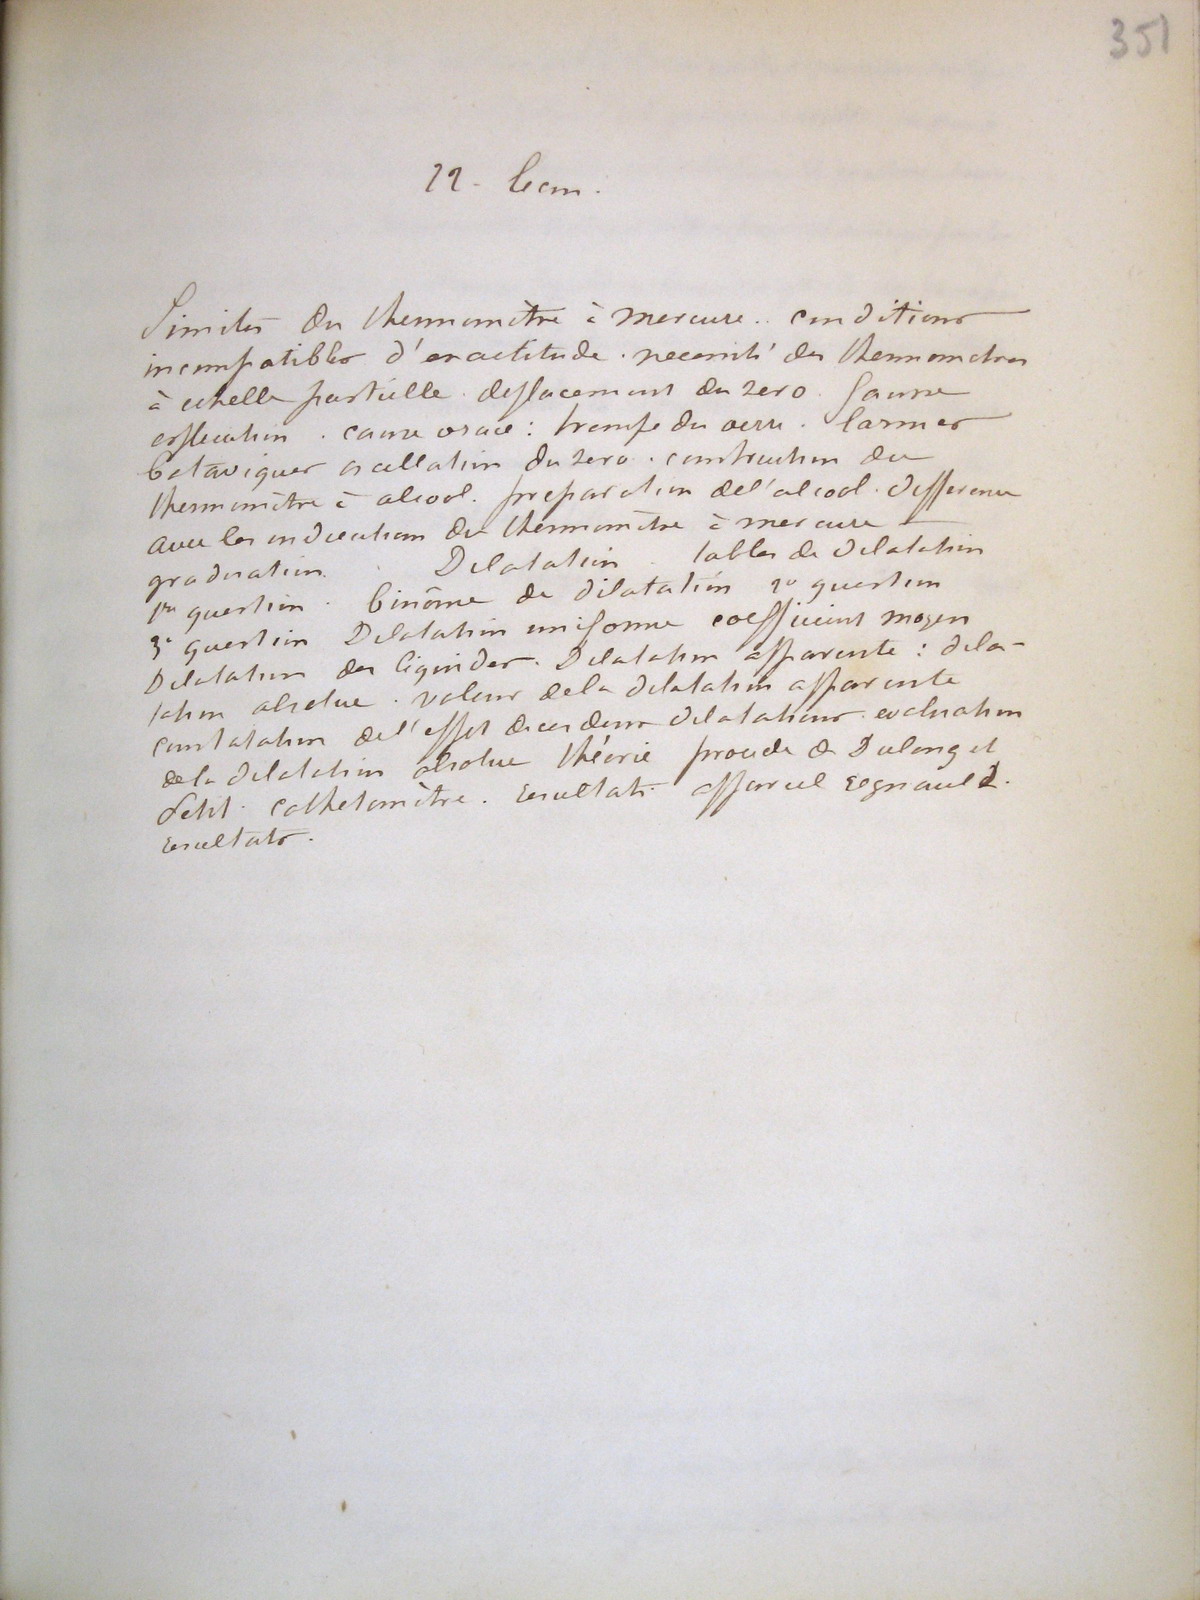 351
22. Lecon.
Limites du thermomètre à mercure.. conditions
incompatibles d'exactitude. necessité des thermometres
à echelle partielle. deplacement du zero. fausse
explication. cause vraie: trempe du verre. larmes
bataviques oscillation du zero. construction du
thermomètre à alcool. preparation de l'alcool. difference
avec les indications du thermomètre à mercure
graduation. Dilatation. tables de dilatation
1re question. binôme de dilatation 2e question
3e question Dilatation uniforme coefficient moyen
Dilatation des liquides. Dilatation apparente: dila-
tation absolue. valeur de la dilatation apparente
constatation de l'effet de ces deux dilatations. evaluation
de la dilatation absolue théorie procede de Dulong et
Petit. cathetomètre. resultats. appareil regnault.
resultats.